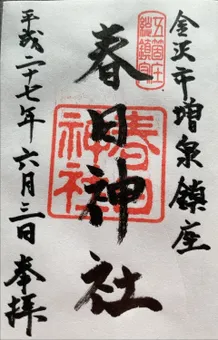 金沢市増泉鎮座
五箇庄
総鎮守
春日神社
春日
神社
平成二十七年六月三日奉拝